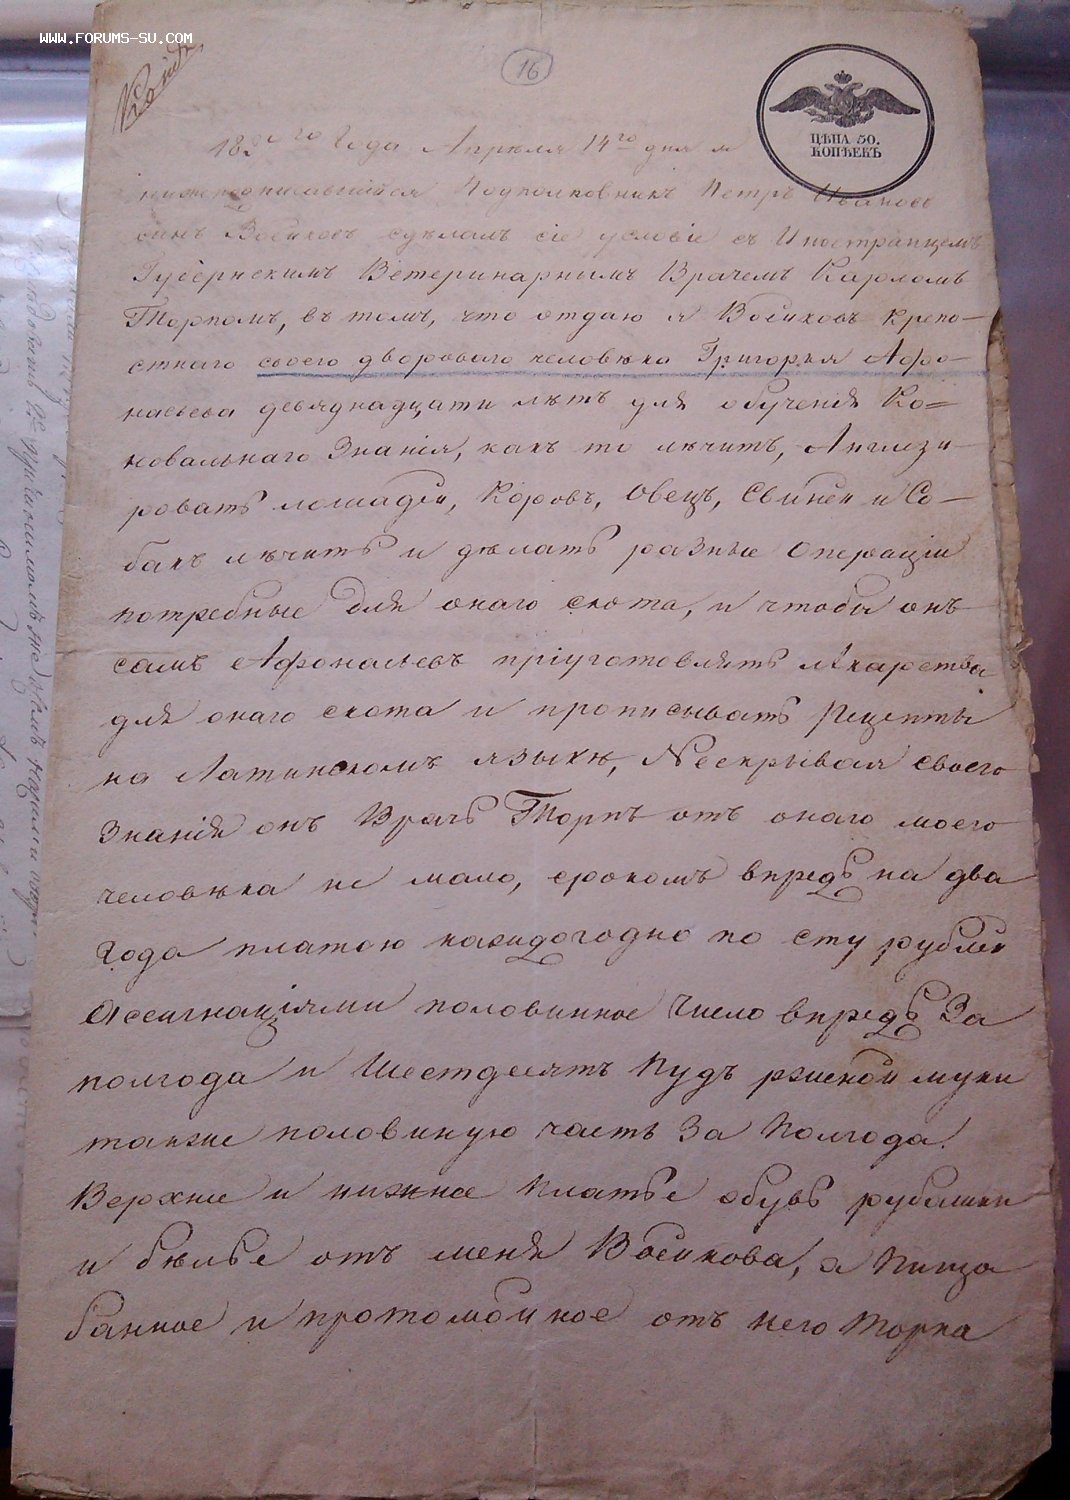 WWW.FORUMS-SU.COM
Копія
16
ЦѢНА 50.
КОПѢЕКЪ
Года Апрѣля 14го дня я
нижеподписавшійся Подполковникъ Петръ Ивановъ
сынъ Воейковъ сдѣлалъ сіе условіе съ Иностранцемъ
Губернскимъ Ветеринарнымъ Врачемъ Карломъ
Торпомъ, въ томъ, что отдаю я Воейковъ крепо-
стнаго своего двороваго человѣка Григорья Афо-
насьева девяднадцати лѣтъ для обученія Ко=
новальнаго Знанія, какъ то лѣчить, Англизи-
ровать лошадей, Коровъ, Овецъ, Свиней и Со-
бакъ лѣчить и дѣлать разные Операціи
потребные для онаго скота, и чтобы онъ
самъ Афонасьевъ пріуготовлять лѣкарства
для онаго скота и прописывать Рецепты
на Латинскомъ языкѣ, Нескрывая своего
Знанія онъ Врачь Торпъ отъ онаго моего
человѣка не мало, срокомъ впредь на два
Года платою каждогодно по сту рублей
Ассигнаціями половинное Число впредь За
полгода и Шестдесятъ Пудъ ржаной муки
также половиную часть За Полгода!
Верхнее и нижнее Платье обувь рубашки
и бѣлье отъ меня Воейкова, а Пища
банное и протомойное отъ него Торпа